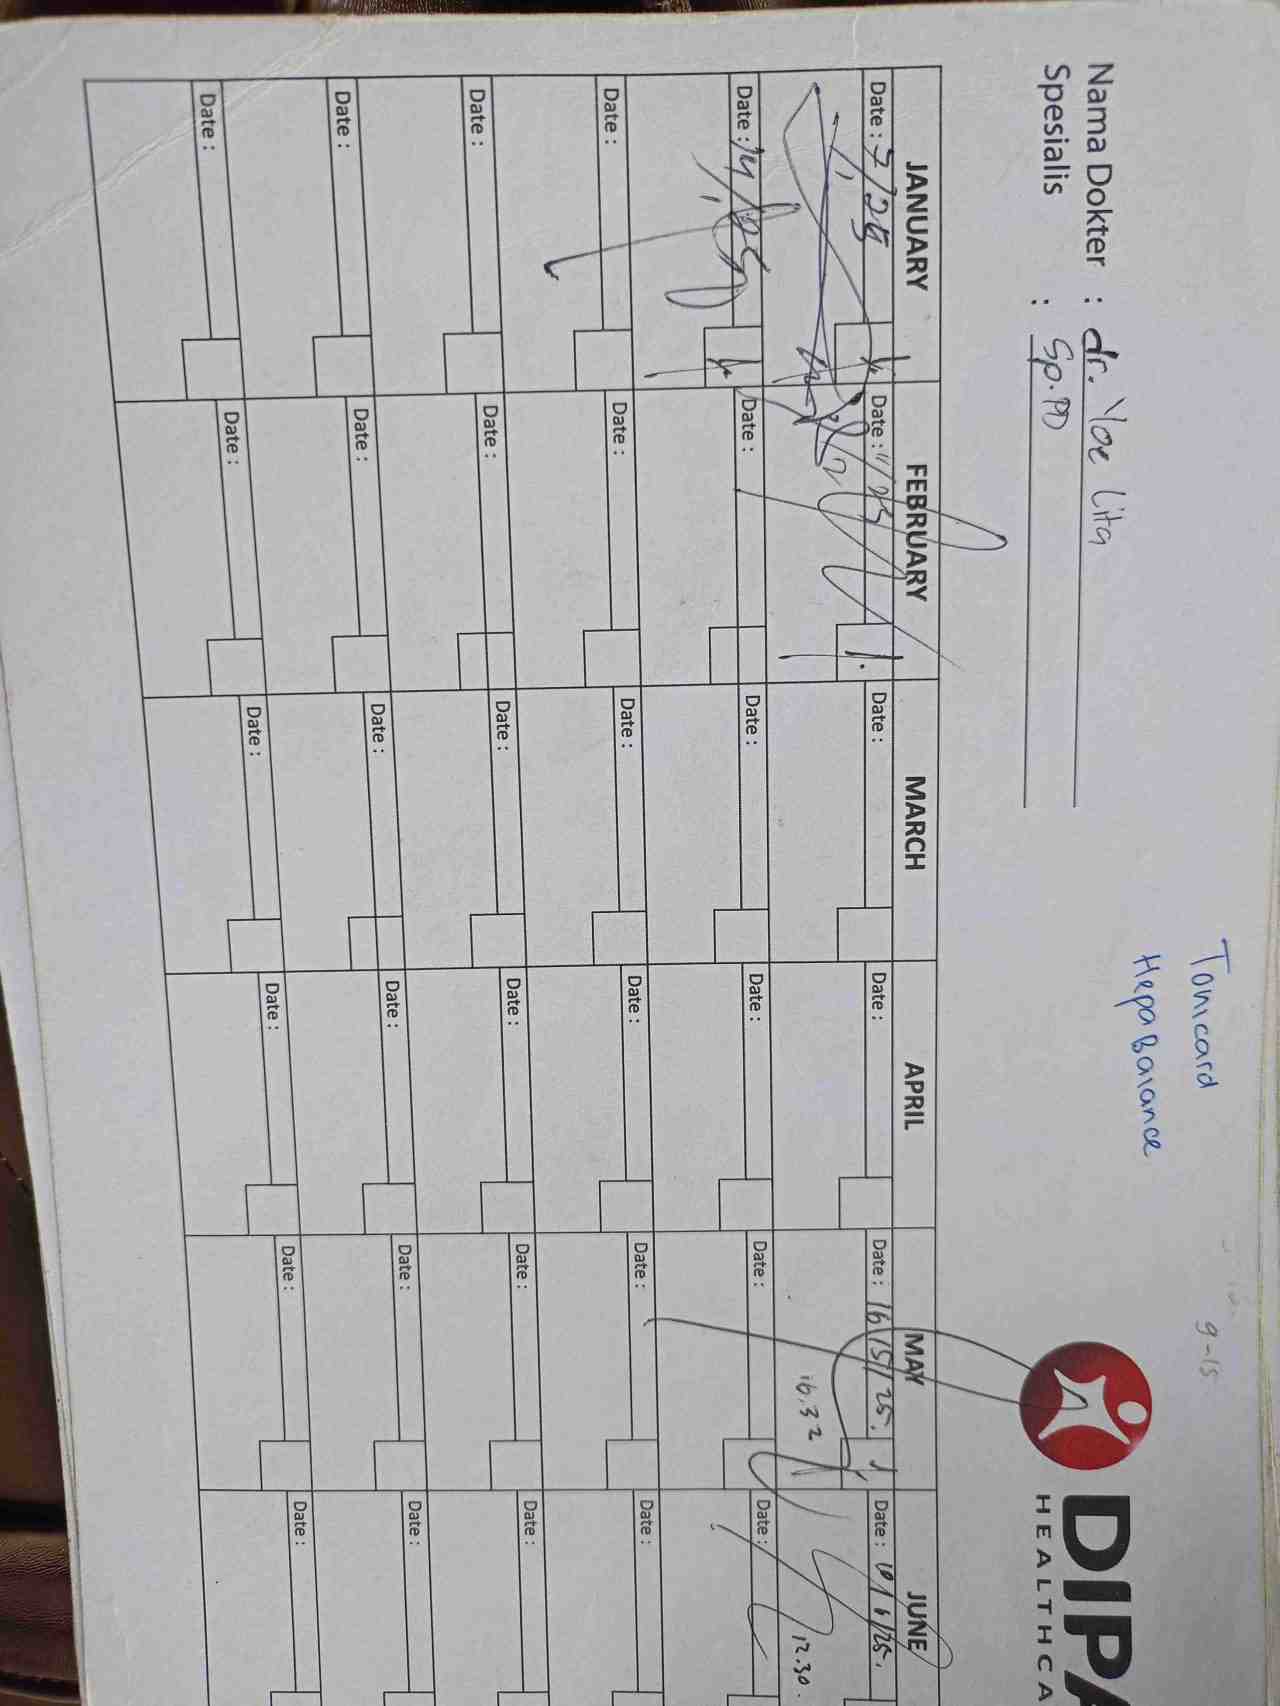 Tonicard
HepaBalance
9-15
DIPA
HEALTHCA
Nama Dokter : dr. Yoe Lita
Spesialis : Sp.PD
JANUARY FEBRUARY MARCH APRIL MAY JUNE
Date : 7/25 Date : 11/25 Date : Date : Date : 16/5/25. Date : 10/6/25.
16.32 12.30.
Date : 14/ Date : Date : Date : Date : Date :
Date : Date : Date : Date : Date : Date :
Date : Date : Date : Date : Date : Date :
Date : Date : Date : Date : Date : Date :
Date : Date : Date : Date : Date : Date :